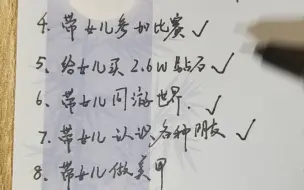 4. 带女儿参加比赛 ✓
5. 给女儿买2.6W钻石 ✓
6. 带女儿周游世界. ✓
7. 带女儿认识各种朋友 ✓
8. 带女儿做美甲